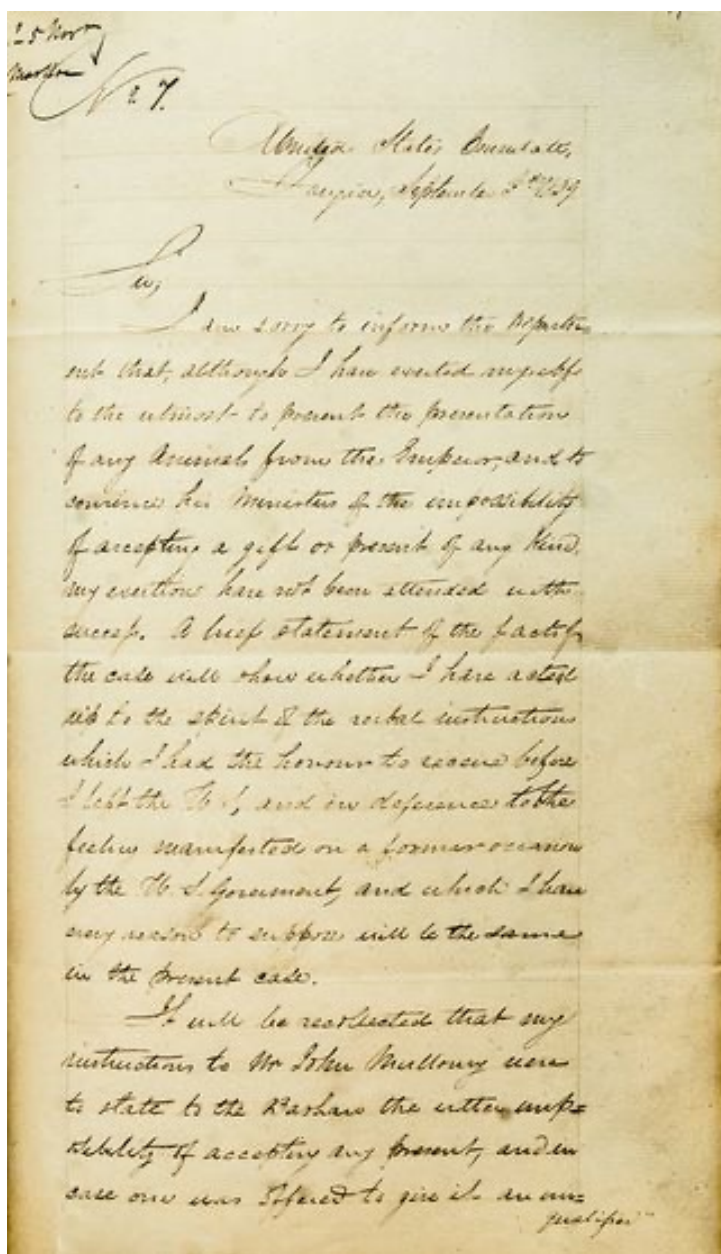 25 Novr
No 7.
United States Consulate,
Tangier, September 3rd 1839
Sir,
I am sorry to inform the Departm-
ent that, although I have exerted myself
to the utmost to prevent the presentation
of any Animals from the Emperor, and to
convince his Ministers of the impossibility
of accepting a gift or present of any kind,
my exertions have not been attended with
success. A brief statement of the facts of
the case will show whether I have acted
up to the spirit of the verbal instructions
which I had the honour to receive before
I left the U.S., and in deference to the
feeling manifested on a former occasion
by the U.S. Government, and which I have
every reason to suppose will be the same
in the present case.
It will be recollected that my
instructions to Mr John Mullowny were
to state to the Bashaw the utter impos=
sibility of accepting any present, and in
case one was offered to give it an un=
qualified